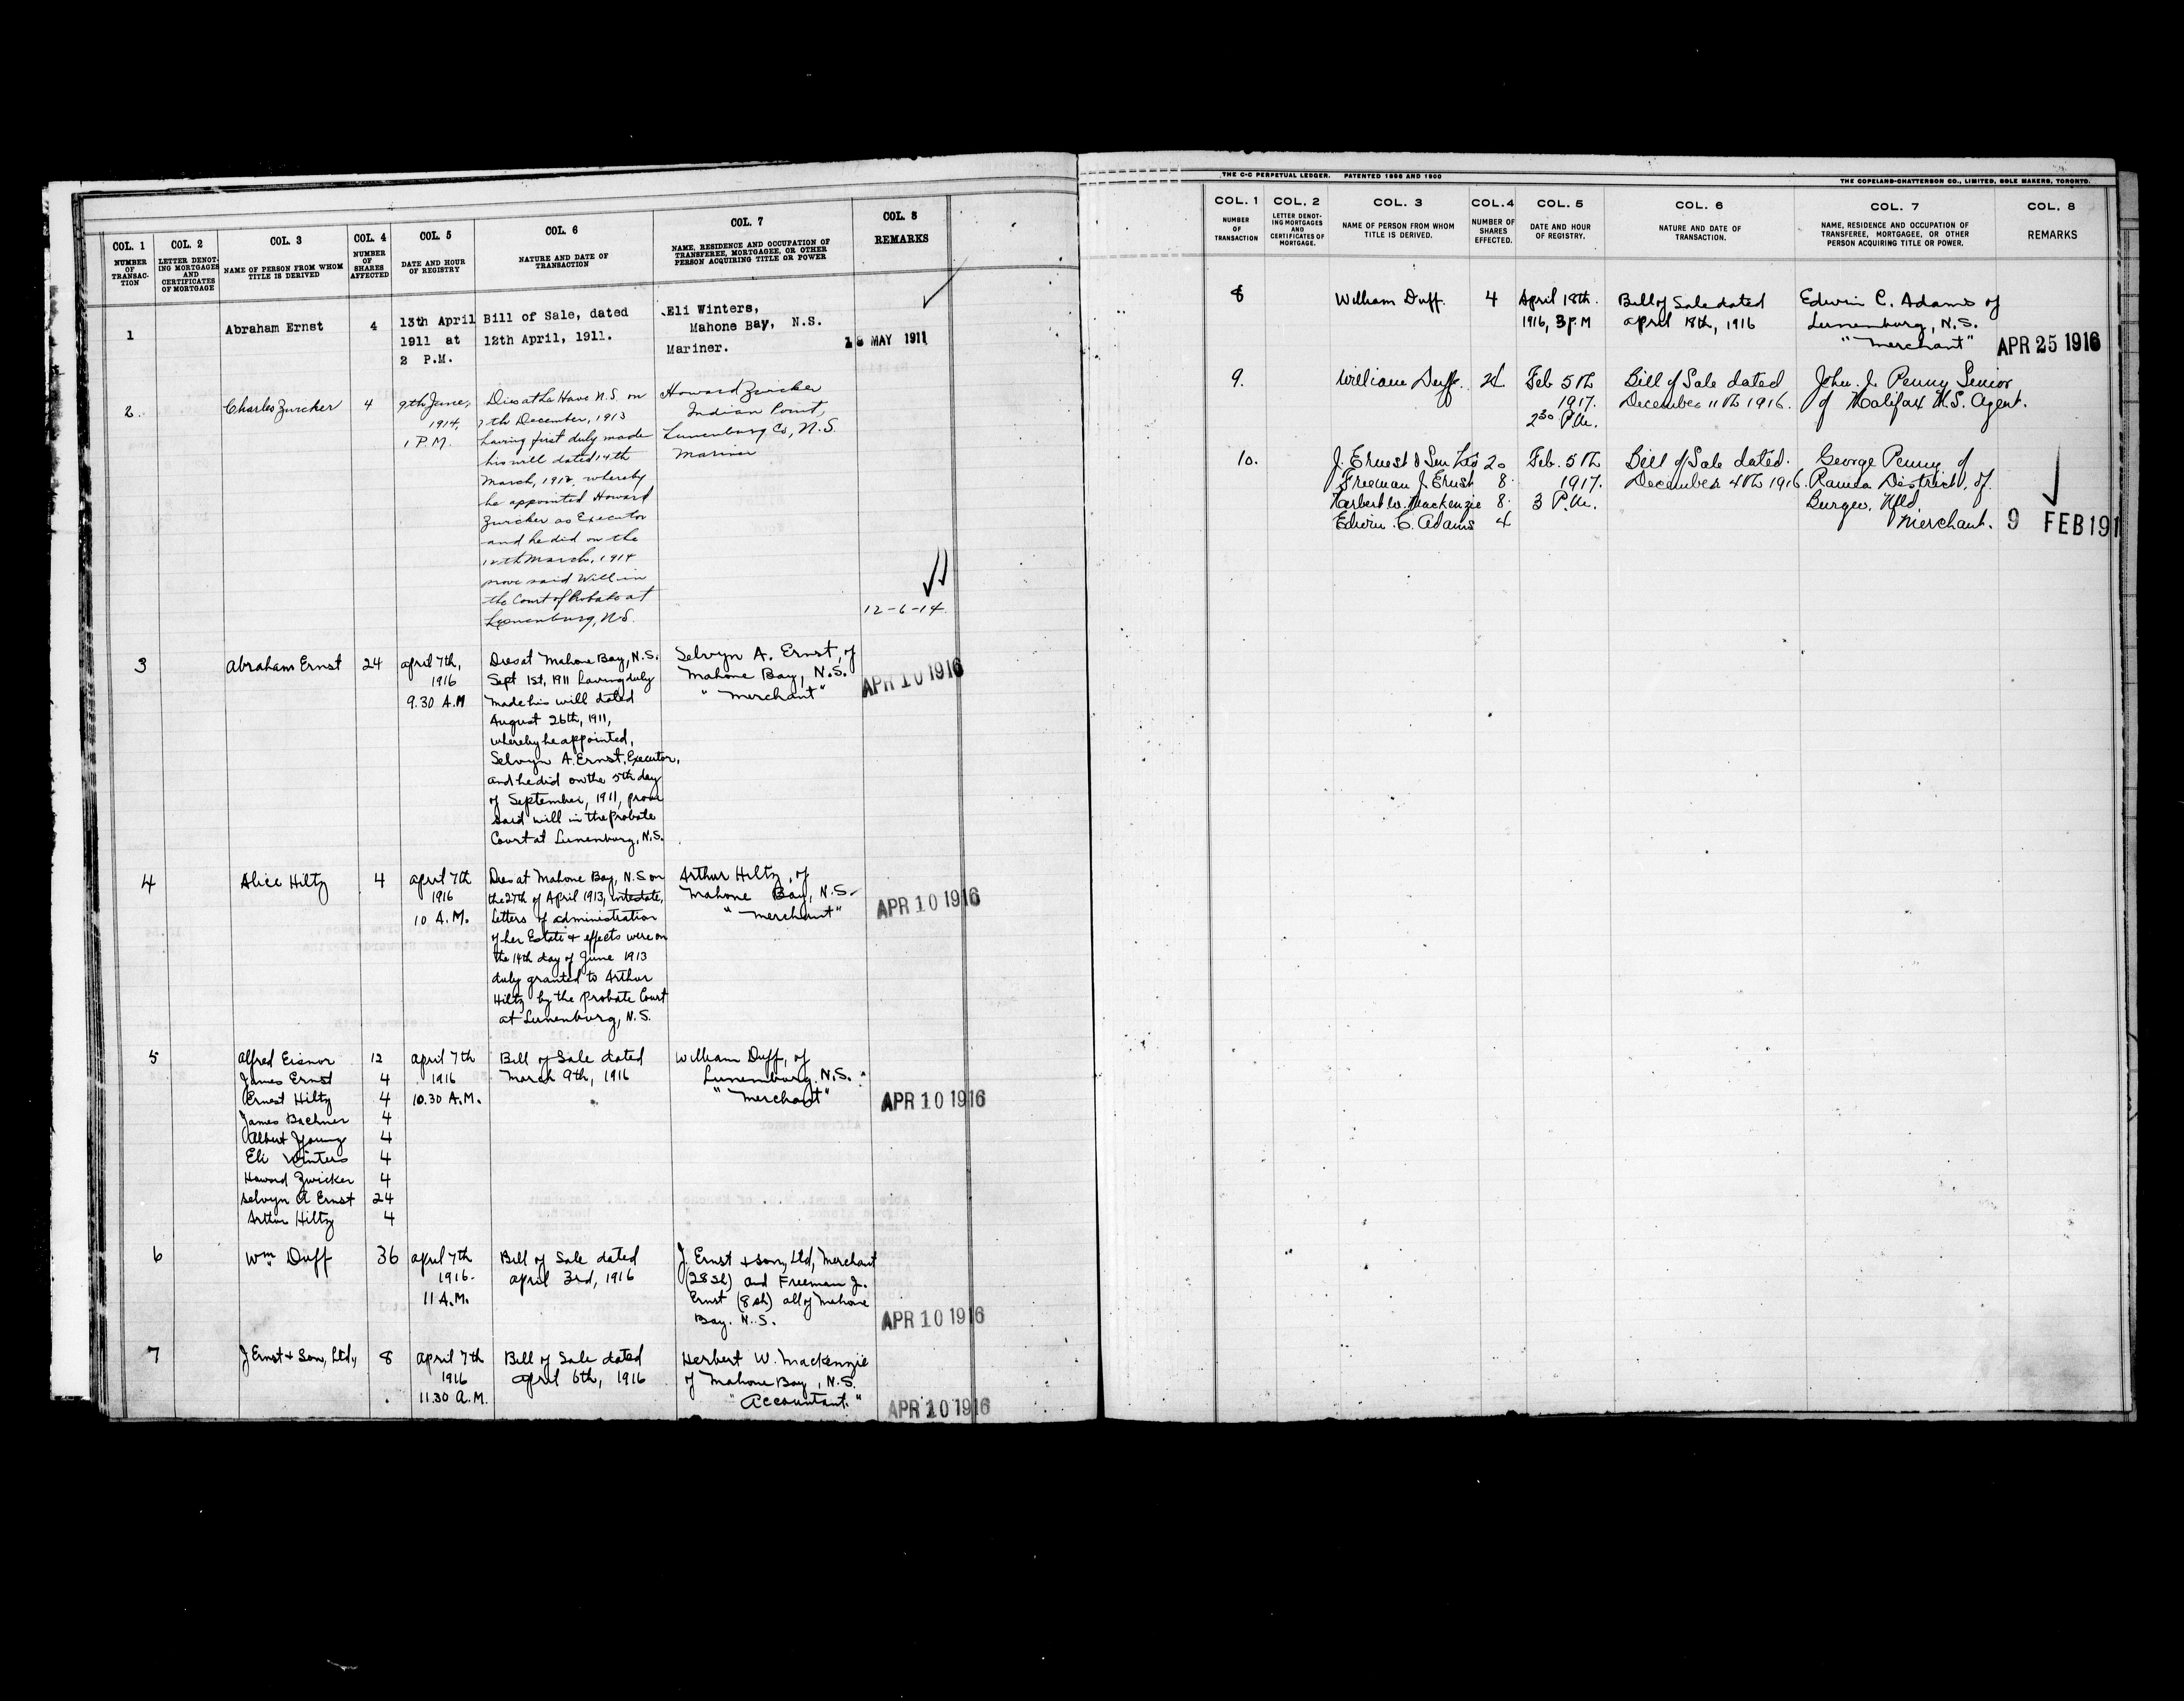 COL. 1 COL. 2 COL. 3 COL. 4 COL. 5 COL. 6 COL. 7 COL. 8
NUMBER OF TRANSAC-TION
LETTER DENOT-ING MORTGAGES AND CERTIFICATES OF MORTGAGE
NAME OF PERSON FROM WHOM TITLE IS DERIVED
NUMBER OF SHARES AFFECTED
DATE AND HOUR OF REGISTRY
NATURE AND DATE OF TRANSACTION
NAME, RESIDENCE AND OCCUPATION OF TRANSFEREE, MORTGAGEE, OR OTHER PERSON ACQUIRING TITLE OR POWER
REMARKS
1
Abraham Ernst
4
13th April
1911 at
2 P.M.
Bill of Sale, dated
12th April, 1911.
Eli Winters,
Mahone Bay, N.S.
Mariner.
MAY 1911
2.
Charles Zwicker
4
9th June,
1914,
1 P.M.
Dies at La Have N.S. on
7th December, 1913
having first duly made
his will dated 14th
March, 1912, whereby
he appointed Howard
Zwicker as Executor
and he did on the
March, 1914
prove said Will in
the Court of Probate at
Lunenburg, N.S.
Howard Zwicker
Indian Point,
Lunenburg Co, N.S.
Mariner
12-6-14
3
Abraham Ernst
24
April 7th,
1916
9.30 A.M
Dies at Mahone Bay, N.S.
Sept 1st, 1911 having duly
made his will dated
August 26th, 1911,
whereby he appointed,
Selvyn A. Ernst, Executor,
and he did on the 5th day
of September, 1911, prove
said will in the Probate
Court at Lunenburg, N.S.
Selvyn A. Ernst, of
Mahone Bay, N.S.
"Merchant"
APR 10 1916
4
Alice Hiltz
4
April 7th
1916
10 A.M.
Dies at Mahone Bay, N.S on
the 27th of April 1913, intestate,
Letters of administration
of her Estate & effects were on
the 14th day of June 1913
duly granted to Arthur
Hiltz by the Probate Court
at Lunenburg, N.S.
Arthur Hiltz, of
Mahone Bay, N.S.
"Merchant"
APR 10 1916
5
Alfred Eisnor 12
James Ernst 4
Ernest Hiltz 4
James Bachner 4
Albert Young 4
Eli Winters 4
Howard Zwicker 4
Selvyn A Ernst 24
Arthur Hiltz 4
April 7th
1916
10.30 A.M.
Bill of Sale dated
March 9th, 1916
William Duff, of
Lunenburg, N.S.
"Merchant"
APR 10 1916
6
Wm Duff
36
April 7th
1916.
11 A.M.
Bill of Sale dated
April 3rd, 1916
J. Ernst & Son, Ltd, Merchant
(28 sh) and Freeman J.
Ernst (8 sh) all of Mahone
Bay. N.S.
APR 10 1916
7
J Ernst & Son, Ltd,
8
April 7th
1916
11.30 A.M.
Bill of Sale dated
April 6th, 1916
Herbert W. Mackenzie
of Mahone Bay, N.S.
"Accountant."
APR 10 1916
THE C-C PERPETUAL LEDGER. PATENTED 1898 AND 1900
THE COPELAND-CHATTERSON CO., LIMITED, SOLE MAKERS, TORONTO.
COL. 1 COL. 2 COL. 3 COL. 4 COL. 5 COL. 6 COL. 7 COL. 8
NUMBER OF TRANSACTION
LETTER DENOT-ING MORTGAGES AND CERTIFICATES OF MORTGAGE.
NAME OF PERSON FROM WHOM TITLE IS DERIVED.
NUMBER OF SHARES EFFECTED.
DATE AND HOUR OF REGISTRY.
NATURE AND DATE OF TRANSACTION.
NAME, RESIDENCE AND OCCUPATION OF TRANSFEREE, MORTGAGEE, OR OTHER PERSON ACQUIRING TITLE OR POWER.
REMARKS
8
William Duff.
4
April 18th.
1916, 3 P.M
Bill of Sale dated
April 18th, 1916
Edwin C. Adams of
Lunenburg, N.S.
"Merchant"
APR 25 1916
9.
William Duff.
24
Feb 5th
1917.
2 30 P.M.
Bill of Sale dated
December 11th 1916.
John. J. Penny Senior
of Halifax N.S. Agent.
10.
J. Ernest & Son Ltd 20
Freeman J. Ernst 8.
Herbert W. Mackenzie 8.
Edwin C. Adams 4
Feb. 5th
1917.
3 P.M.
Bill of Sale dated.
December 4th 1916.
George Penny of
Ramea District, of
Burgeo, Nfld
Merchant.
9 FEB 191